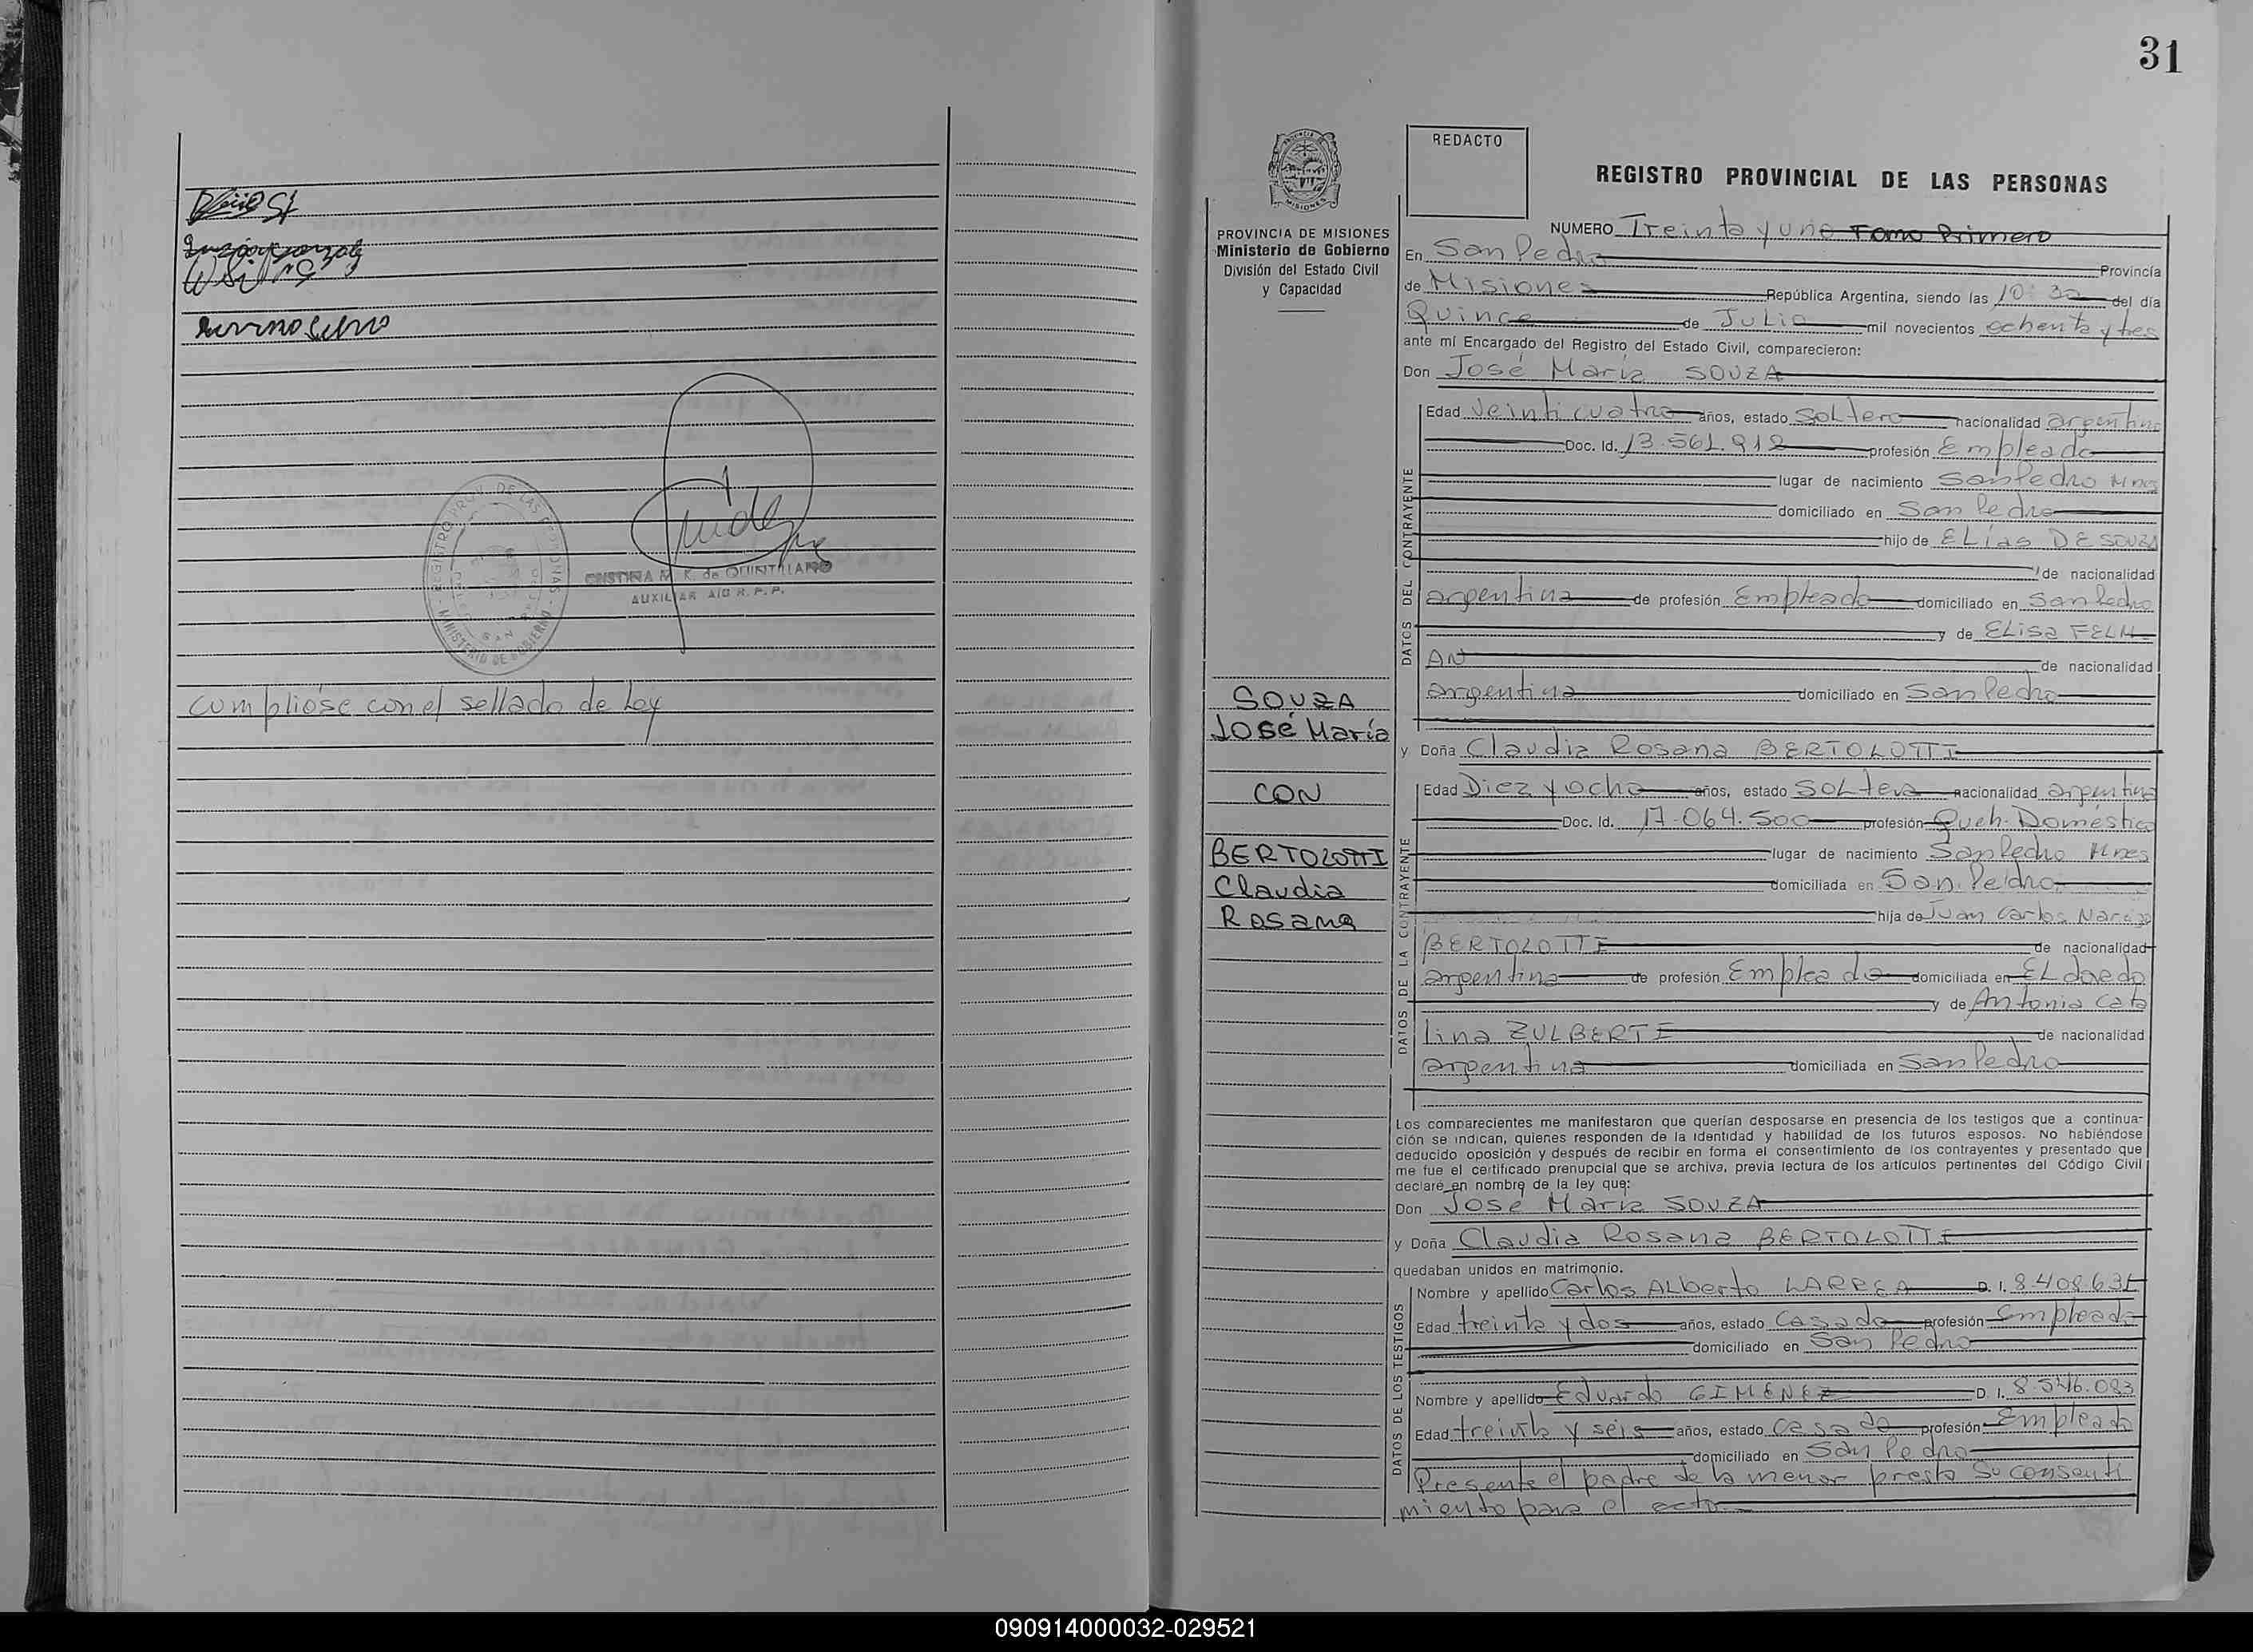 Cumplióse con el sellado de Ley
CRISTINA M. K. de QUINTILLANO
AUXILIAR A/C R. P. P.
31
REDACTO
REGISTRO PROVINCIAL DE LAS PERSONAS
PROVINCIA DE MISIONES
Ministerio de Gobierno
División del Estado Civil
y Capacidad
NUMERO Treinta y uno Tomo Primero
En San Pedro Provincia
de Misiones República Argentina, siendo las 10:30 del día
Quince de Julio mil novecientos ochenta y tres
ante mí Encargado del Registro del Estado Civil, comparecieron:
Don José María SOUZA
DATOS DEL CONTRAYENTE
Edad Veinticuatro años, estado Soltero nacionalidad argentino
Doc. Id. 13.561.912 profesión Empleado
lugar de nacimiento San Pedro Mnes
domiciliado en San Pedro
hijo de ELías DE SOUZA
de nacionalidad
argentina de profesión Empleado domiciliado en San Pedro
y de ELisa FELM=
AN de nacionalidad
argentina domiciliado en San Pedro
SOUZA
José María
CON
BERTOLOTTI
Claudia
Rosana
y Doña Claudia Rosana BERTOLOTTI
DATOS DE LA CONTRAYENTE
Edad Diez y ocho años, estado SOLtera nacionalidad argentina
Doc. Id. 17.064.500 profesión Queh. Doméstico
lugar de nacimiento San Pedro Mnes
domiciliada en San Pedro
hija de Juan Carlos
BERTOLOTTI de nacionalidad
argentina de profesión Empleado domiciliada en ELdorado
y de Antonia Cata
lina ZULBERTI de nacionalidad
argentina domiciliada en San Pedro
Los comparecientes me manifestaron que querían desposarse en presencia de los testigos que a continua-
ción se indican, quienes responden de la identidad y habilidad de los futuros esposos. No habiéndose
deducido oposición y después de recibir en forma el consentimiento de los contrayentes y presentado que
me fue el certificado prenupcial que se archiva, previa lectura de los artículos pertinentes del Código Civil
declaré en nombre de la ley que:
Don José María SOUZA
y Doña Claudia Rosana BERTOLOTTI
quedaban unidos en matrimonio.
DATOS DE LOS TESTIGOS
Nombre y apellido Carlos ALberto LARREA D. I. 8.408.631
Edad treinta y dos años, estado Casado profesión Empleado
domiciliado en San Pedro
Nombre y apellido Eduardo GIMENEZ D. I. 8.546.083
Edad treinta y séis años, estado Casado profesión Empleado
domiciliado en San Pedro
Presente el padre de la menor presta su consenti
miento para el acto
090914000032-029521